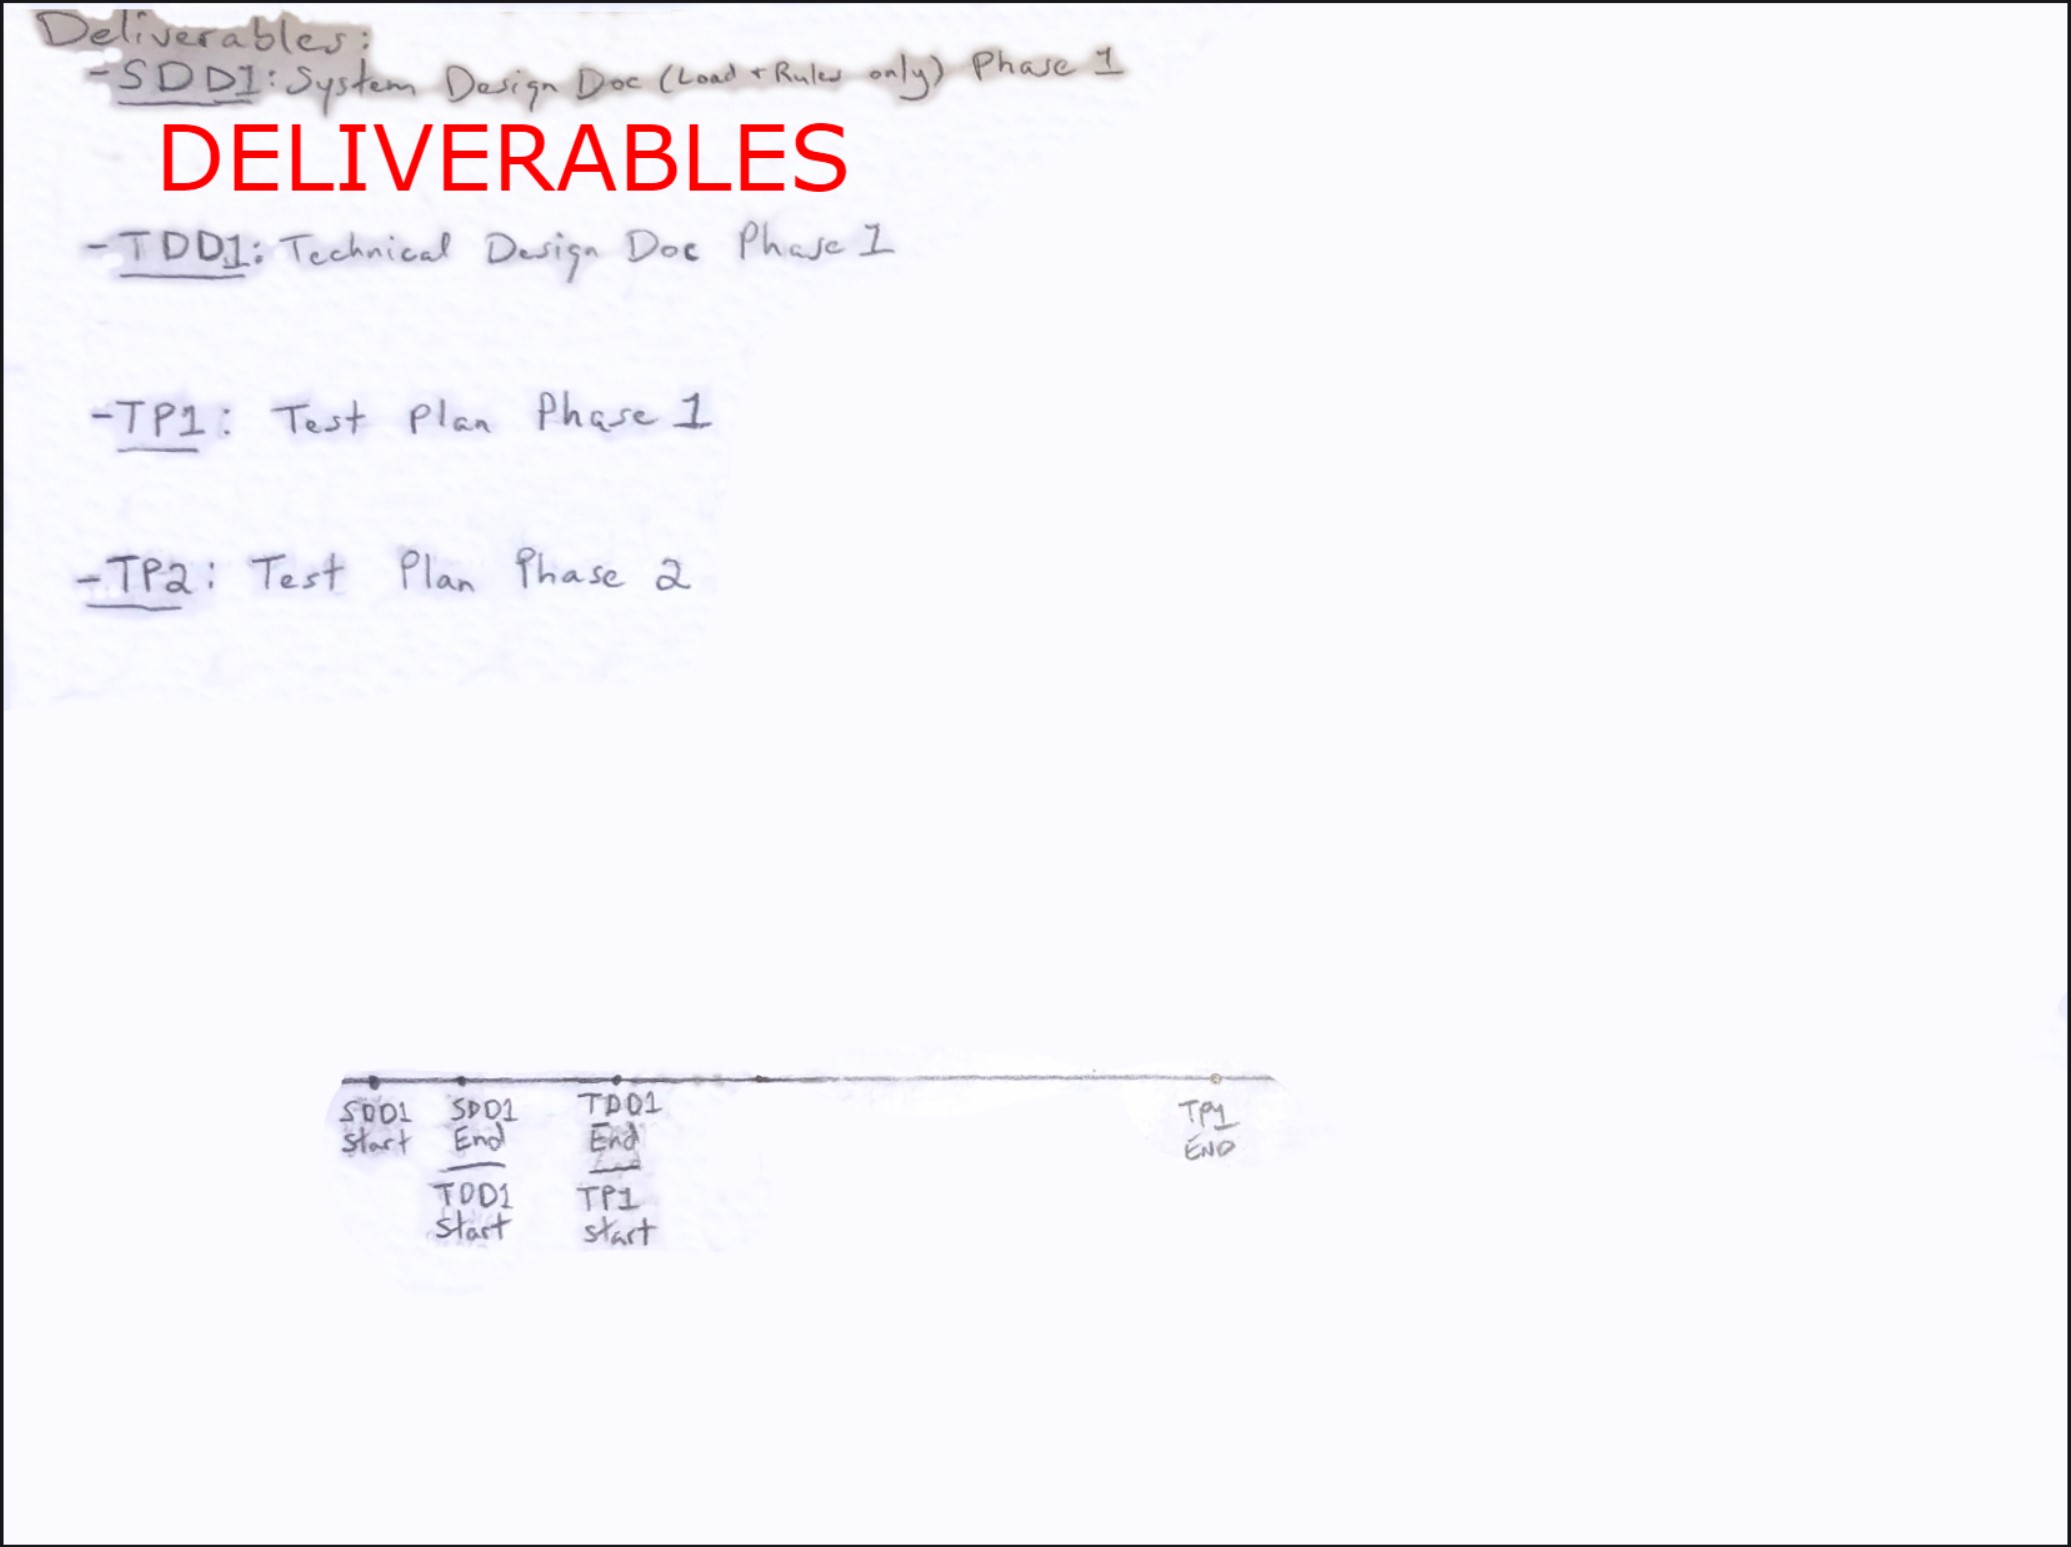 Deliverables:
-SDD1: System Design Doc (Load + Rules only) Phase 1
DELIVERABLES
-TDD1: Technical Design Doc Phase 1
-TP1: Test Plan Phase 1
-TP2: Test Plan Phase 2
SDD1
Start
SDD1
End
TDD1
Start
TDD1
End
TP1
Start
TP1
END